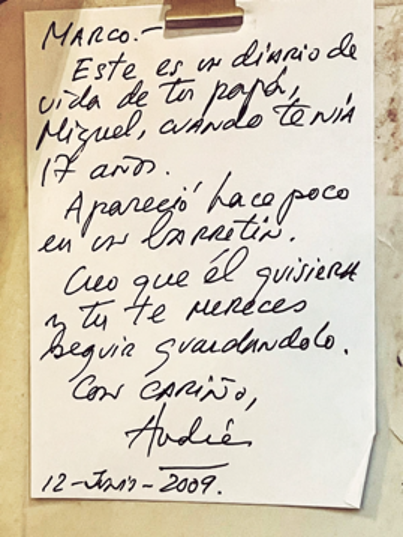 MARCO.-
Este es un diario de
vida de tu papá,
Miguel, cuando tenía
17 años.
Apareció hace poco
en un barretín.
Creo que él quisiera
y tu te mereces
seguir guardandolo.
Con cariño,
Andrés
12-Junio-2009.